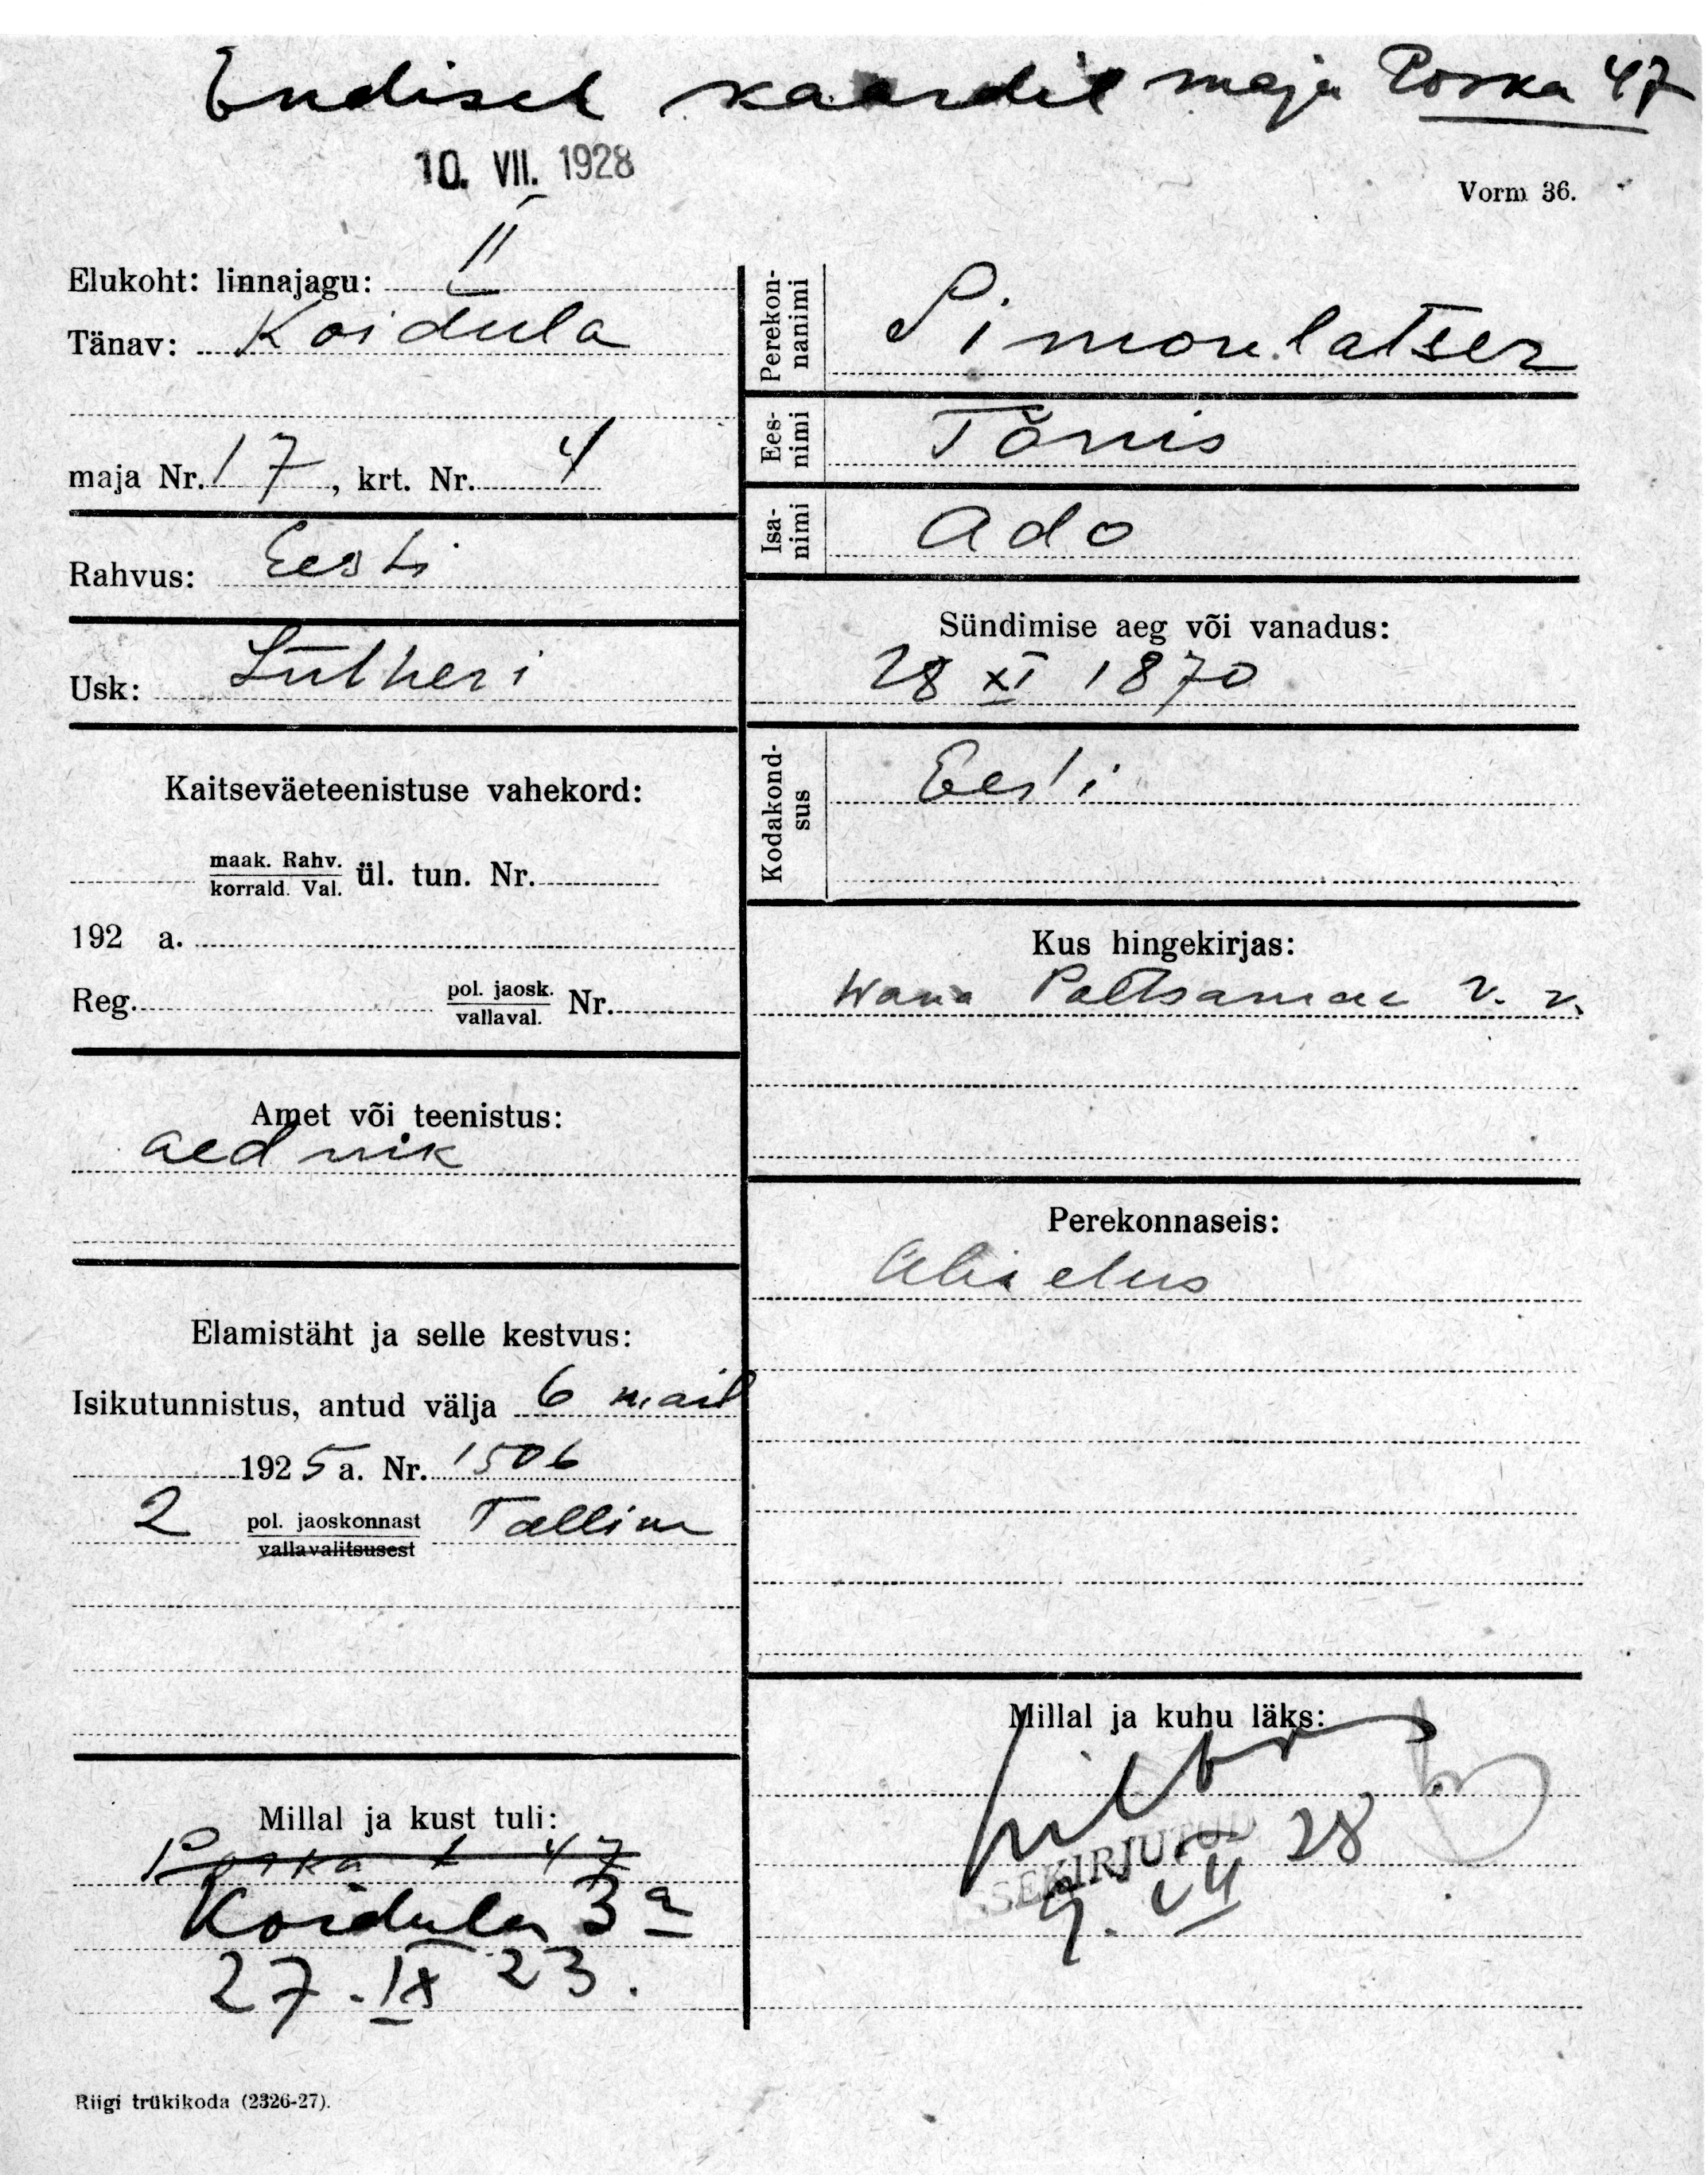 Endisel kaardil maja Poska 47
10. VII. 1928
Vorm 36.
Elukoht: linnajagu: II
Tänav: Koidula
maja Nr. 17, krt. Nr. 4
Rahvus: Eesti
Usk: Lutheri
Kaitseväeteenistuse vahekord:
maak. Rahv.
korrald. Val. ül. tun. Nr.
192 a.
Reg. pol. jaosk.
vallaval. Nr.
Amet või teenistus:
aednik
Elamistäht ja selle kestvus:
Isikutunnistus, antud välja 6 mail
1925 a. Nr. 1506
2 pol. jaoskonnast Tallinn
vallavalitsusest
Millal ja kust tuli:
Poska t 47
Koidula 3a
27. IX 23.
Perekon-
nanimi
Simonlatser
Ees-
nimi
Tõnis
Isa-
nimi
Ado
Sündimise aeg või vanadus:
28 XI 1870
Kodakond-
sus
Eesti
Kus hingekirjas:
Wana Põltsamaa v. v.
Perekonnaseis:
Abielus
Millal ja kuhu läks:
SSEKIRJUTUD
9. VII 28
Riigi trükikoda (2326-27).